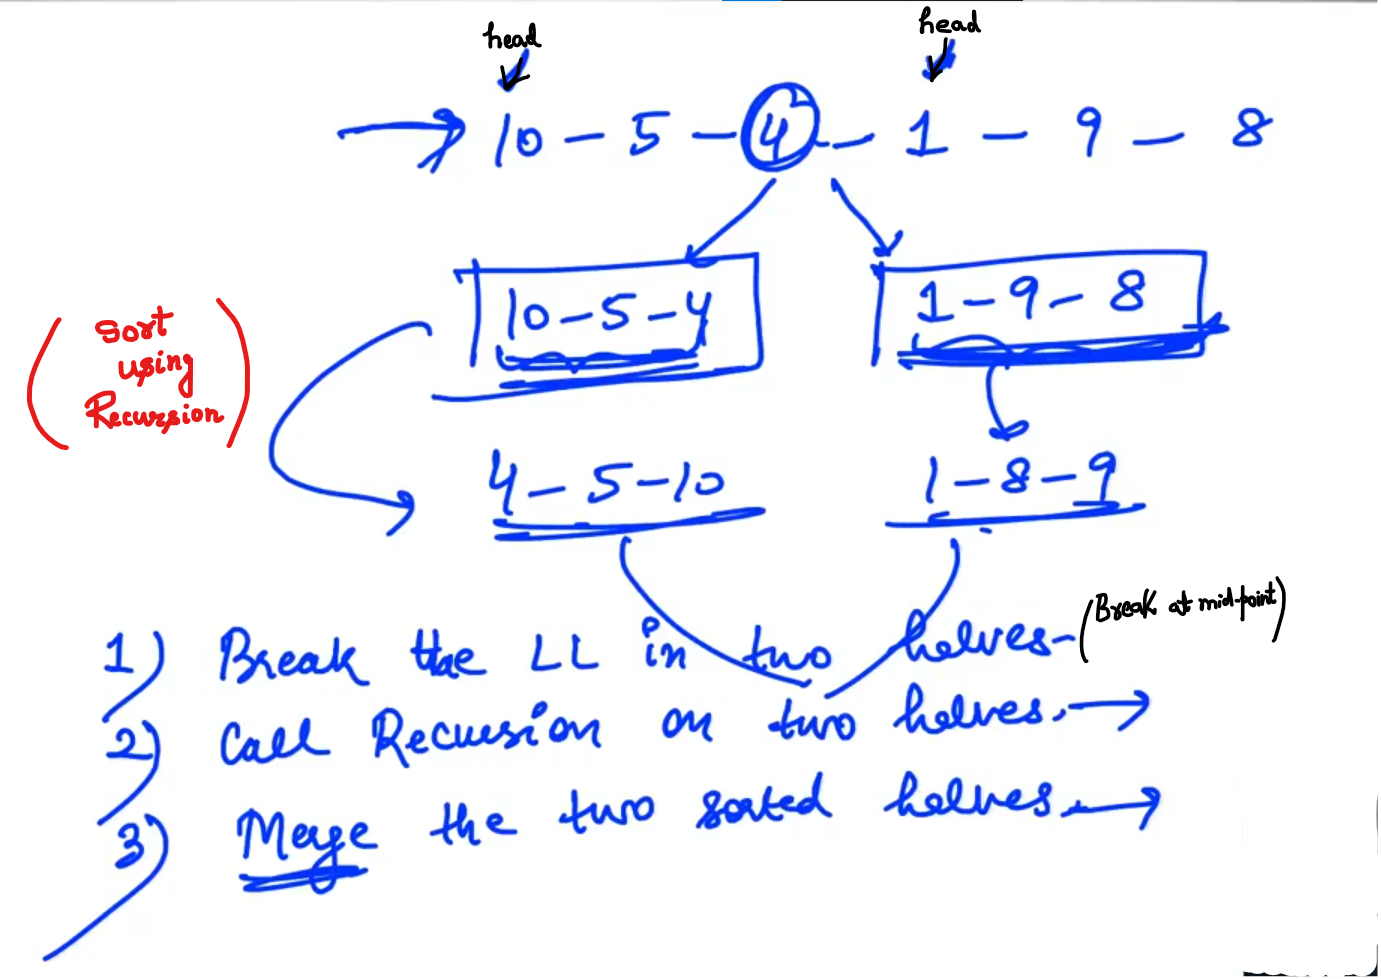 head head
10 - 5 - 4 - 1 - 9 - 8
10 - 5 - 4 1 - 9 - 8
(Sort
using
Recursion)
4 - 5 - 10 1 - 8 - 9
1) Break the LL in two halves - (Break at mid-point)
2) Call Recursion on two halves.
3) Merge the two sorted halves.